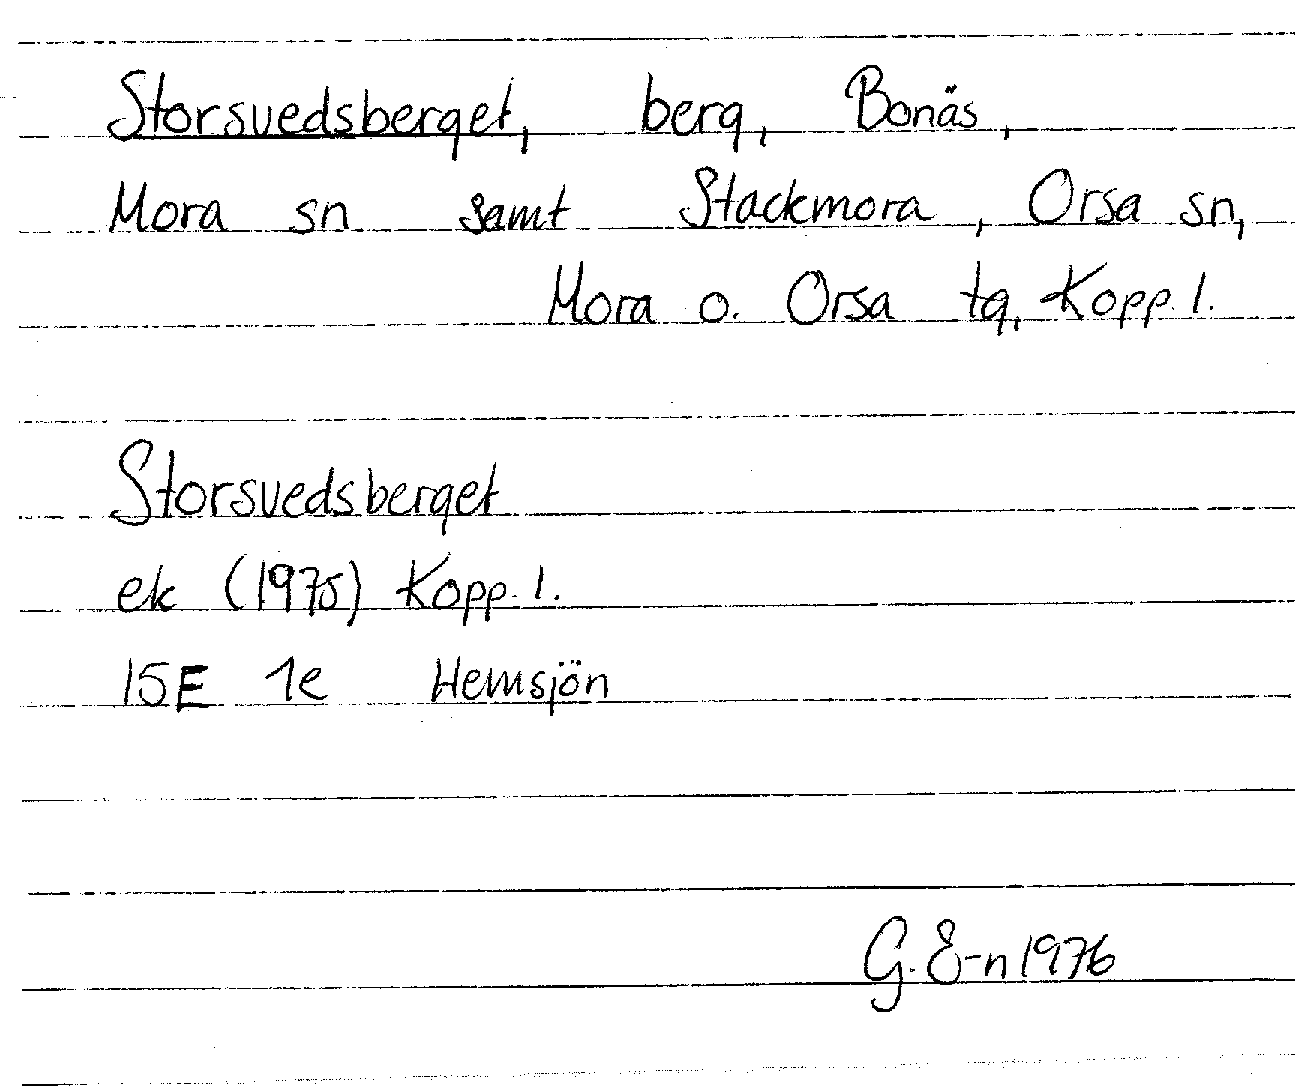 Storsvedsberget, berg, Bonäs,
Mora sn samt Stackmora, Orsa sn,
Mora o. Orsa tg, Kopp. l.
Storsvedsberget
ek (1975) Kopp. l.
15E 1e Hemsjön
G. E-n 1976